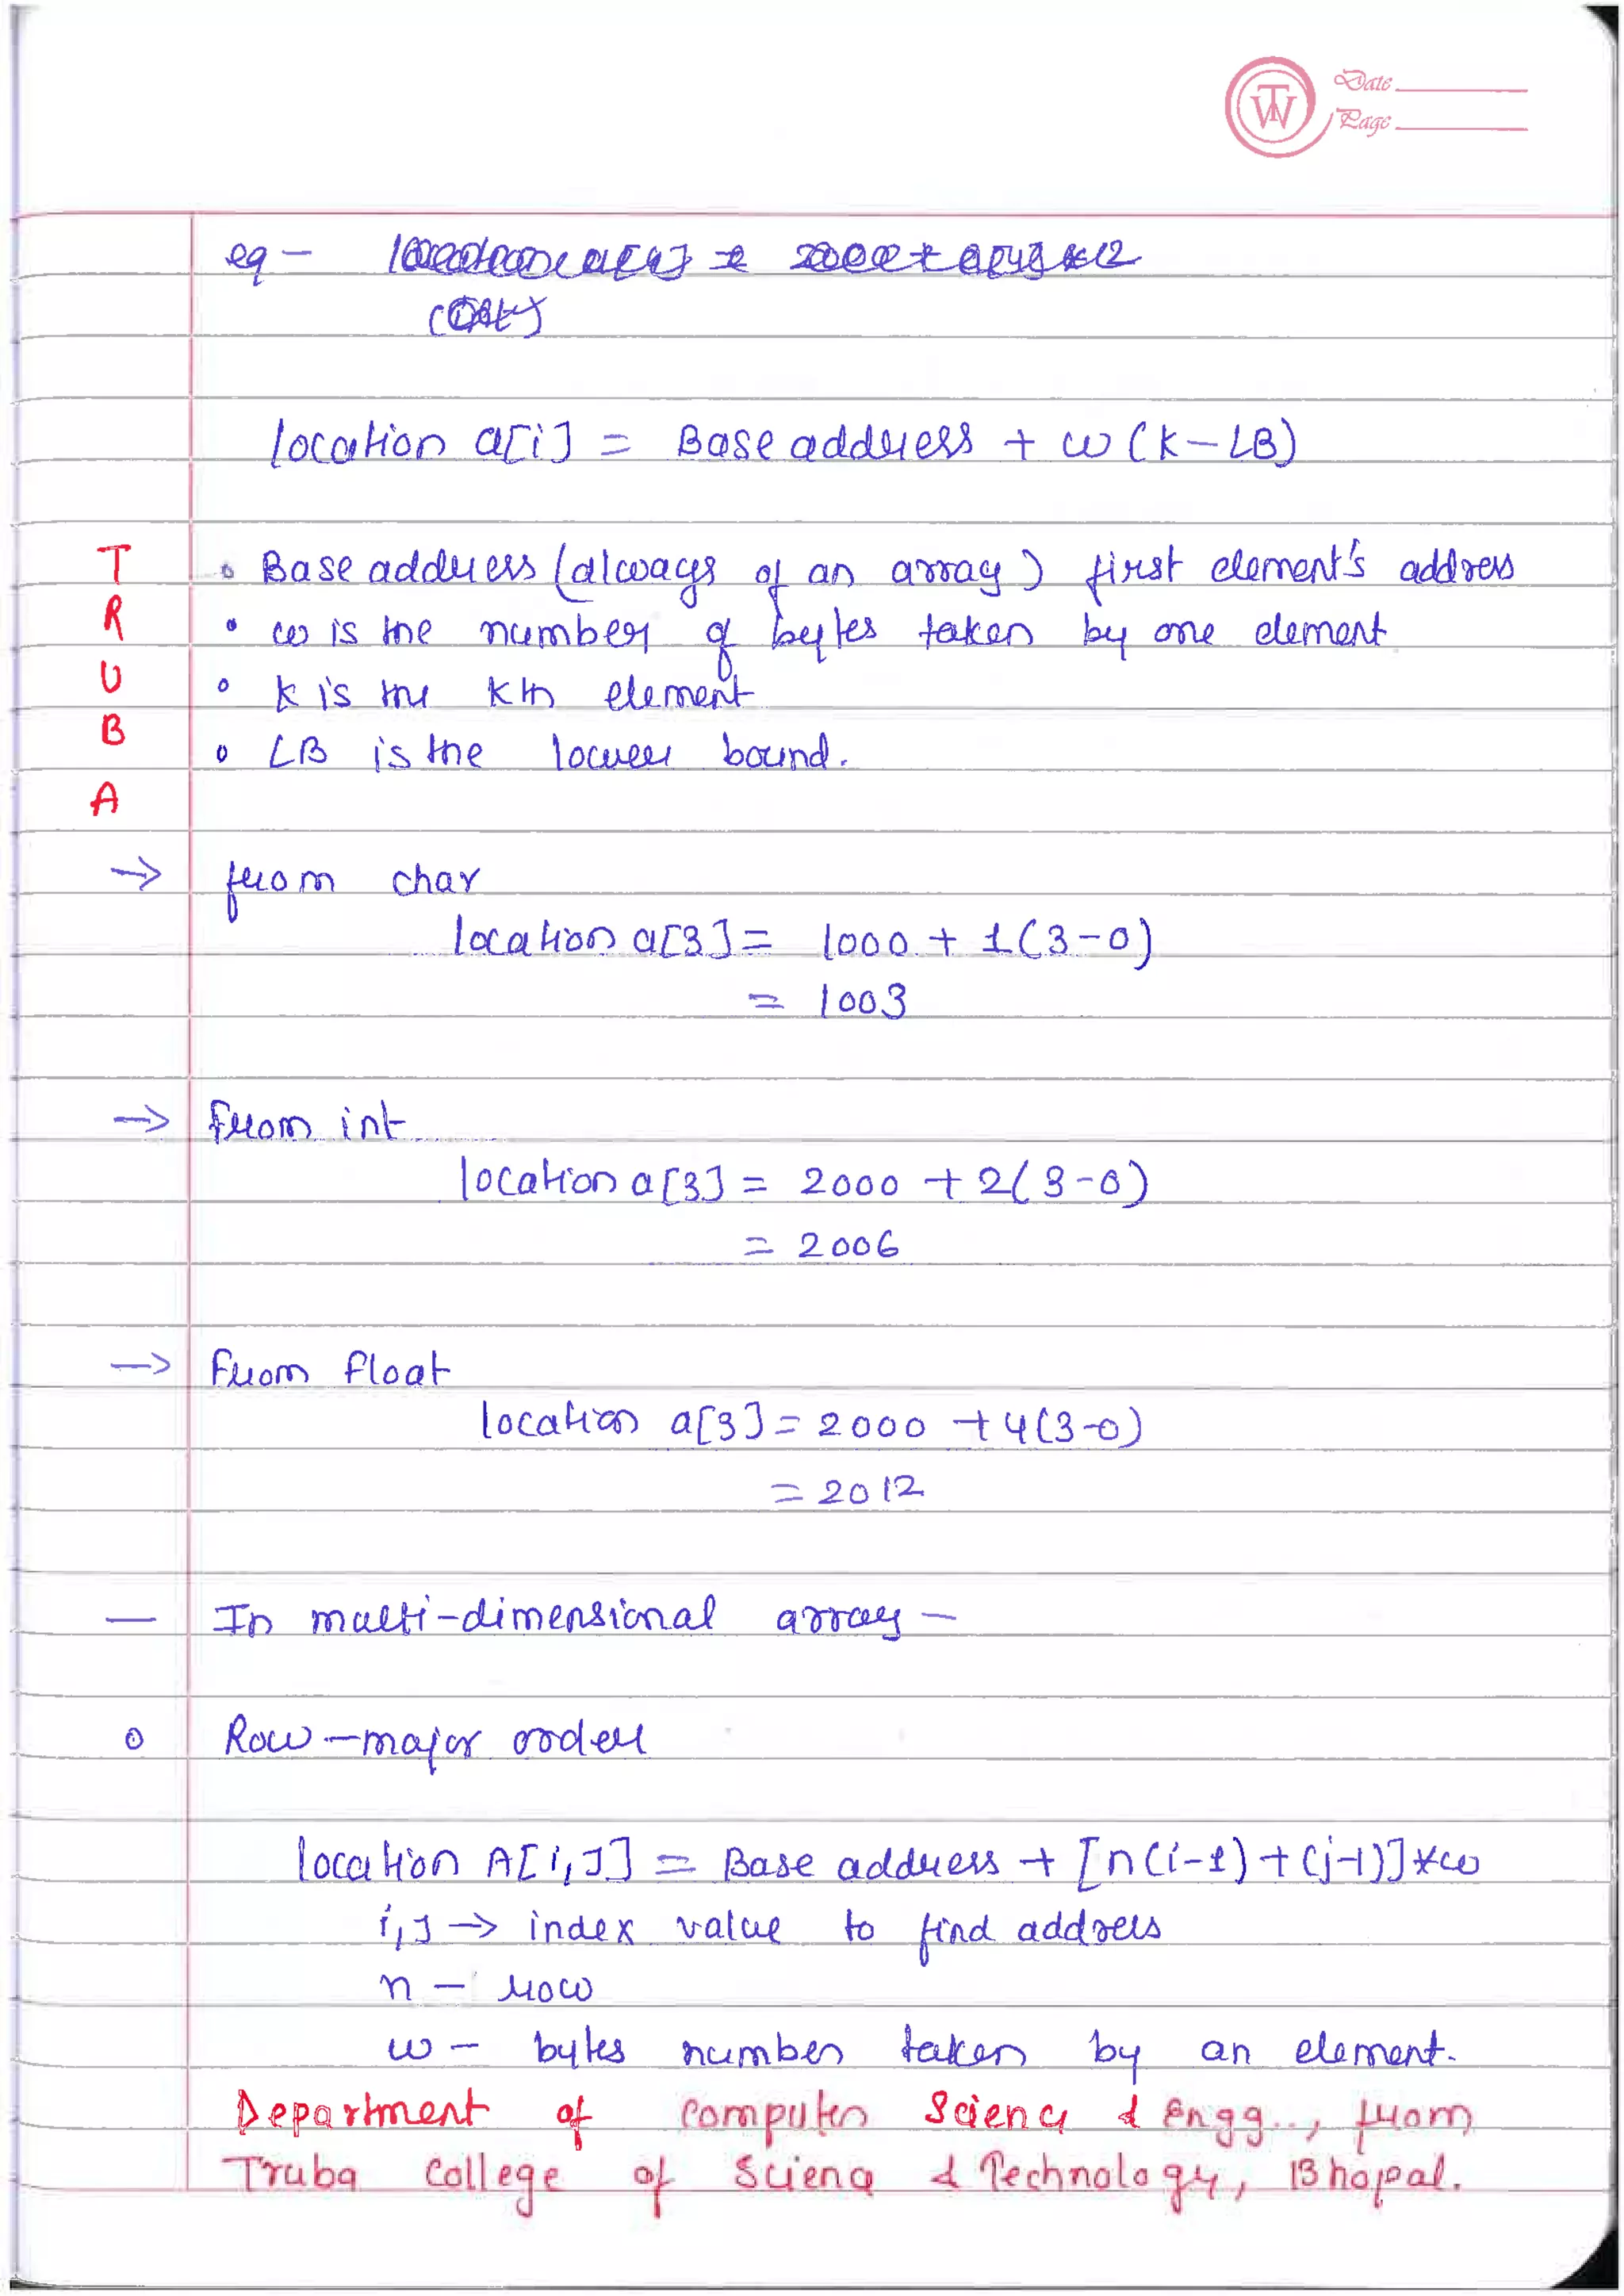 Date
Page
eg -
location a[i] = Base address + w (k - LB)
T
• Base address (always of an array) first element's address
R
• w is the number of bytes taken by one element
U
• k is the kth element
B
• LB is the lower bound.
A
→ from char
location a[3] = 1000 + 1(3-0)
= 1003
→ From int
location a[3] = 2000 + 2(3-0)
= 2006
→ From float
location a[3] = 2000 + 4(3-0)
= 2012
— In multi-dimensional array —
• Row-major order
location A[i,J] = Base address + [n(i-1) + (j-1)]*w
i,J → index value to find address
n - row
w - bytes number taken by an element.
Department of Computer Science & Engg.., from
Truba College of Science & Technology, Bhopal.